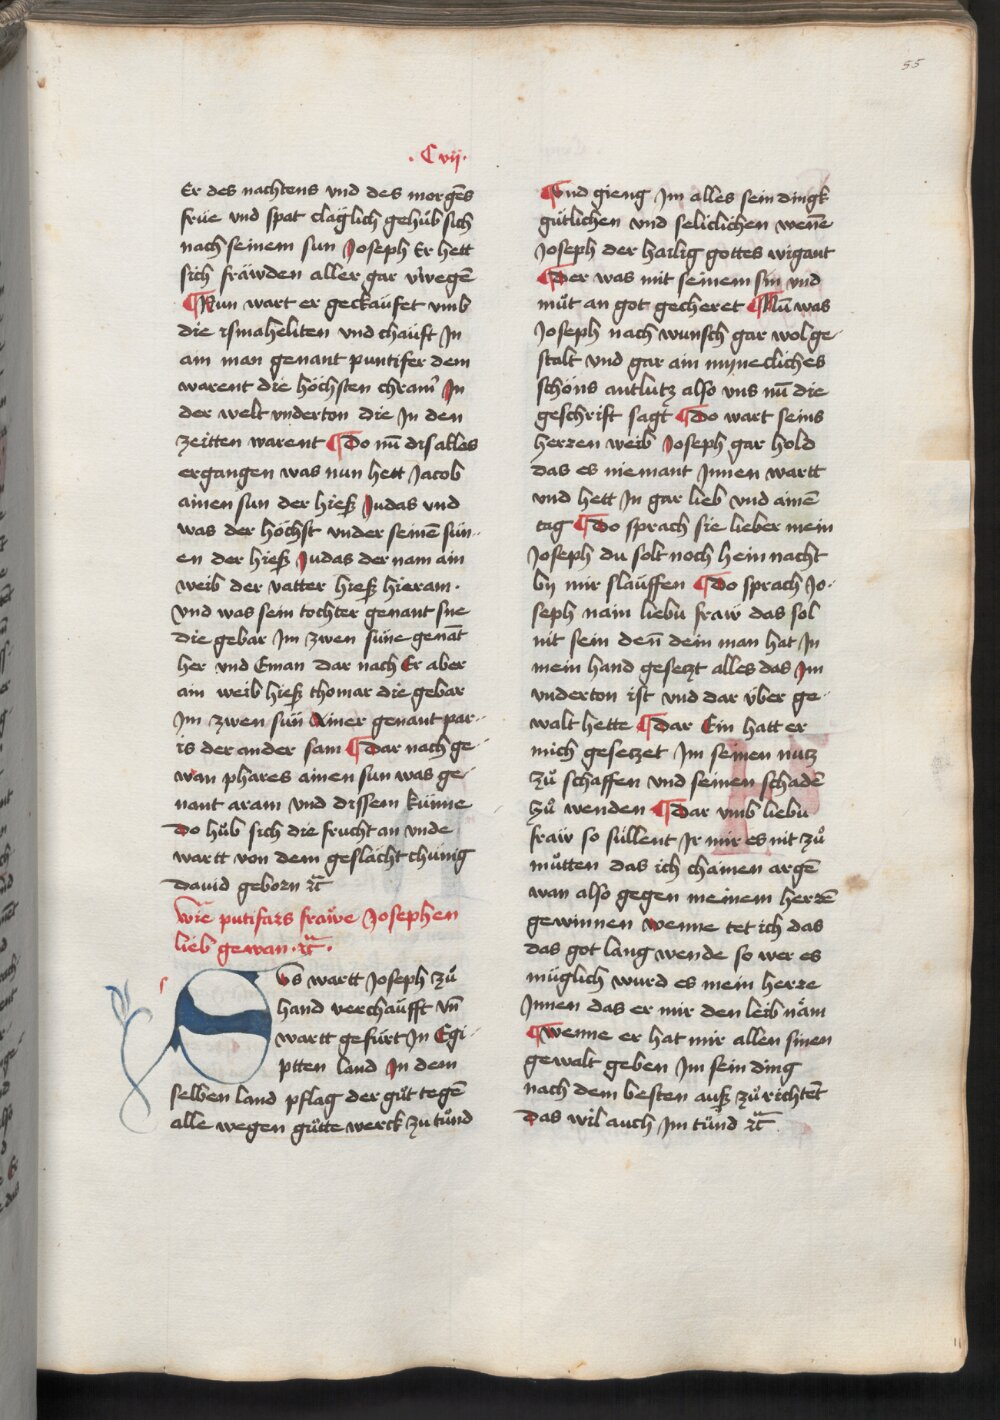 55
. C vij .
Er des nachtens vnd des morgēs
frue vnd spat cläglich gehůb sich
nach seinem sun Joseph Er hett
sich fräwden aller gar v̓wegē
¶ Nun wart er geckaufet vmb
die ismaheliten vnd chauft Jn
ain man genant puntifer dem
warent die höchsten chram̄ Jn
der welt vnderton die Jn den
zeitten warent ¶ Do nū dis alles
ergangen was nun hett Jacob
ainen sun der hieß Judas vnd
was der höchst vnder seinē sün-
en der hieß Judas der nam ain
weib der vatter hieß hieram.
vnd was sein tochter genant sue
die gebar Jm zwen süne genāt
her vnd Eman dar nach Er aber
ain weib hieß thomar die gebar
Jm zwen sün Ainer genant par-
is der ander sam ¶ Dar nach ge-
wan phares ainen sun was ge-
nant aram vnd dissem künne
Do hůb sich die frucht an vnde
wartt von dem geslächt chünig
david geborn ꝛc̄
Wie putifars frawe Josephen
lieb gewan . ꝛc̄ .
SVs wartt Joseph zů
hand verchäufft vn̄
wartt gefürt Jn Egi-
ptten land Jn dem
selben land pflag der gůt tegē
alle wegen gůtte werck zu tůnd
¶ Vnd gieng Jm alles sein dingk
gütlichen vnd seliclichen wenē
Joseph der hailig gottes wigant
¶ Der was mit seinem sin vnd
můt an got gecheret ¶ Nū was
Joseph nach wunsch gar wol ge-
stalt vnd gar ain mynecliches
schöns antlutz also vns nū die
geschrift sagt ¶ Do wart seins
herzen weib Joseph gar hold
das es niemant Jnnen wartt
vnd hett Jn gar lieb vnd ainē
tag ¶ Do sprach sie lieber mein
Joseph du solt noch hein nacht
by mir slauffen ¶ Do sprach Jo-
seph nain liebü fraw das sol
nit sein deñ dein man hat Jn
mein hand gesetzt alles das Jm
vnderton ist vnd dar vber ge-
walt hette ¶ Dar Ein hatt er
mich gesetzet Jm seinen nutz
zů schaffen vnd seinen schadē
zů wenden ¶ Dar vmb liebü
fraw so süllent Jr mir es nit zů
můtten das ich chainen argē
wan also gegen meinem herrē
gewinnen wenne tet ich das
das got lang wende so wer es
müglich wurd es mein herre
Jnnen das er mir den leib näm
¶ wenne er hat mir allen sinen
gewalt geben Jm sein ding
nach dem besten auß zů richtēt
das wil auch Jm tůnd ꝛc̄